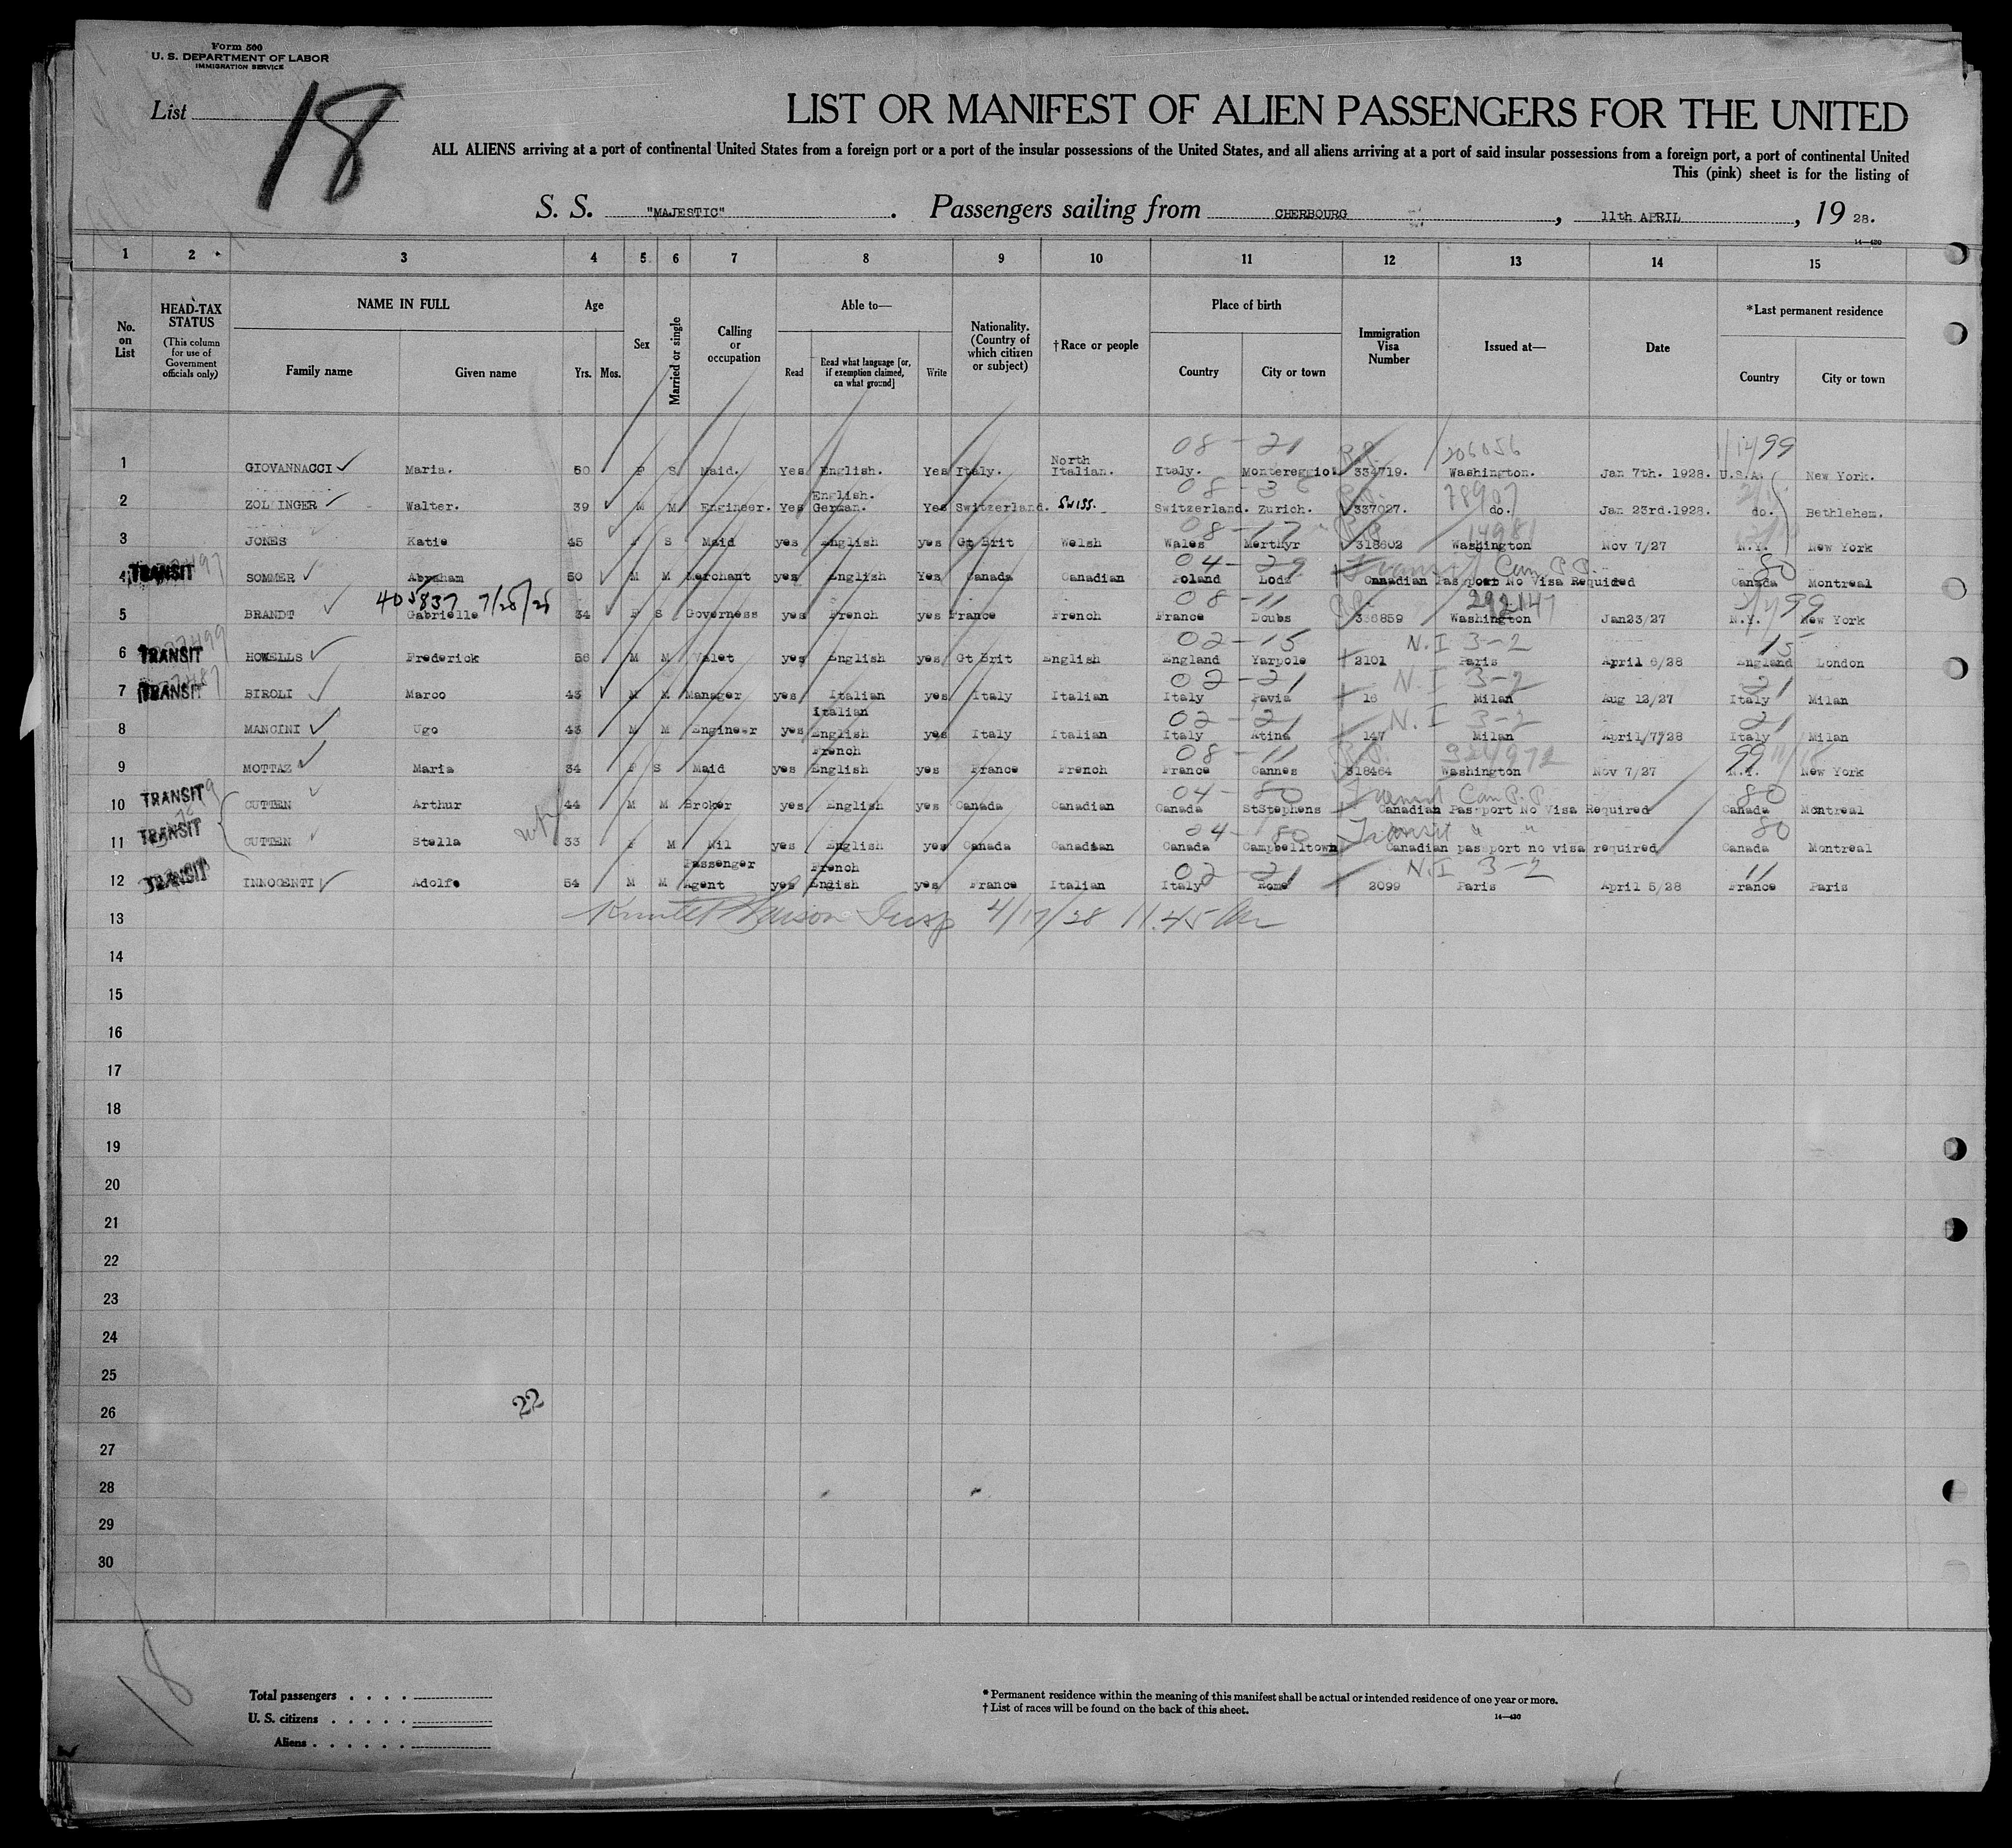 Form 500
U. S. DEPARTMENT OF LABOR
IMMIGRATION SERVICE
List 18
LIST OR MANIFEST OF ALIEN PASSENGERS FOR THE UNITED
ALL ALIENS arriving at a port of continental United States from a foreign port or a port of the insular possessions of the United States, and all aliens arriving at a port of said insular possessions from a foreign port, a port of continental United
This (pink) sheet is for the listing of
S. S. "MAJESTIC". Passengers sailing from CHERBOURG, 11th APRIL, 19 28.
14—430
1 2 3 4 5 6 7 8 9 10 11 12 13 14 15
No. on List
HEAD-TAX STATUS
(This column for use of Government officials only)
NAME IN FULL
Family name
Given name
Age
Yrs. Mos.
Sex
Married or single
Calling or occupation
Able to—
Read
Read what language [or, if exemption claimed, on what ground]
Write
Nationality. (Country of which citizen or subject)
†Race or people
Place of birth
Country
City or town
Immigration Visa Number
Issued at—
Date
*Last permanent residence
Country
City or town
08 - 21 206056 99
1 GIOVANNACCI Maria. 50 F S Maid. Yes English. Yes Italy. North Italian. Italy. Montereggio. 334719. Washington. Jan 7th. 1928. U.S.A. New York.
08 - 36 78907
2 ZOLLINGER Walter. 39 M M Engineer. Yes English. German. Yes Switzerland. Swiss. Switzerland. Zurich. 337027. do. Jan 23rd.1928. do. Bethlehem.
08 - 17 14981
3 JONES Katie 45 F S Maid yes English yes Gt Brit Welsh Wales Merthyr 318602 Washington Nov 7/27 N.Y. New York
04 - 29 Transit Can P.P. 80
4 TRANSIT SOMMER Abraham 50 M M Merchant yes English Yes Canada Canadian Poland Lodz Canadian Passport No Visa Required Canada Montreal
405837 7/25/28 08 - 11 292147 99
5 BRANDT Gabrielle 34 F S Governess yes French yes France French France Doubs 336859 Washington Jan23/27 N.Y. New York
02 - 15 N.I 3-2 15
6 TRANSIT HOWELLS Frederick 56 M M Valet yes English yes Gt Brit English England Yarpole 2101 Paris April 6/28 England London
02 - 21 N.I 3-2 21
7 TRANSIT BIROLI Marco 43 M M Manager yes Italian yes Italy Italian Italy Pavia 16 Milan Aug 12/27 Italy Milan
02 - 21 N.I 3-2 21
8 MANCINI Ugo 43 M M Engineer yes Italian English yes Italy Italian Italy Atina 147 Milan April/7/28 Italy Milan
08 - 11 324972 99
9 MOTTAZ Maria 34 F S Maid yes French English yes France French France Cannes 318464 Washington Nov 7/27 N.Y. New York
04 - 80 Transit Can P.P. 80
10 TRANSIT CUTTEN Arthur 44 M M Broker yes English yes Canada Canadian Canada StStephens Canadian Passport No Visa Required Canada Montreal
04 - 80 Transit " " 80
11 TRANSIT CUTTEN Stella 33 F M Nil yes English yes Canada Canadian Canada Campbelltown Canadian passport no visa required Canada Montreal
02 - 21 N.I 3-2 11
12 TRANSIT INNOCENTI Adolfo 54 M M Passenger Agent yes French English yes France Italian Italy Rome 2099 Paris April 5/28 France Paris
13 Insp 4/17/28 11.45 Am
14
15
16
17
18
19
20
21
22
23
24
25
26 22
27
28
29
30
18
Total passengers
U. S. citizens
Aliens
* Permanent residence within the meaning of this manifest shall be actual or intended residence of one year or more.
† List of races will be found on the back of this sheet.
14—430